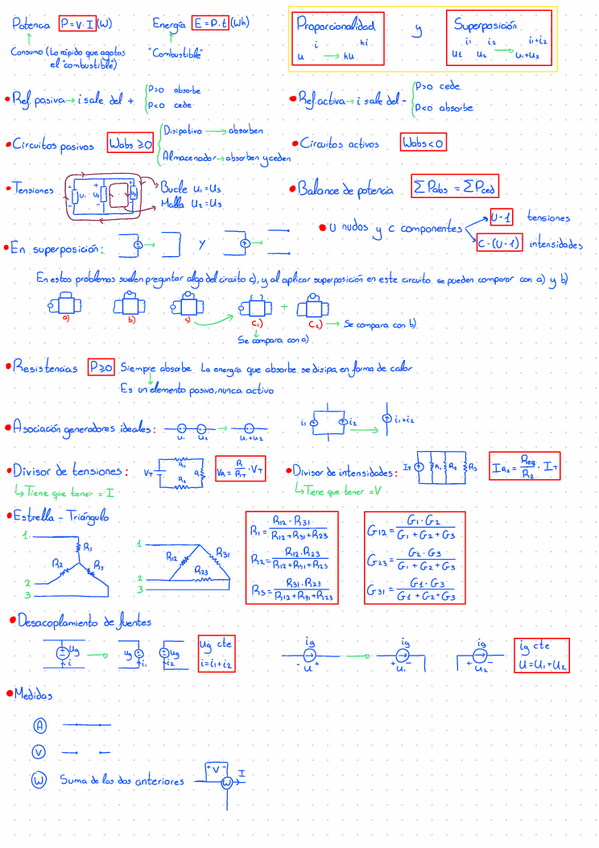 Potencia P=V·I (W)
Energía E=P·t (Wh)
Proporcionalidad y Superposición
i ki
u → ku
i1 i2 i1+i2
u1 u2 → u1+u2
Consumo (Lo rápido que agotas
el "combustible")
"Combustible"
Ref. pasiva → i sale del + P>0 absorbe
P<0 cede
Ref. activa → i sale del - P>0 cede
P<0 absorbe
Circuitos pasivos Wabs ≥ 0 Disipativo → absorben
Almacenador → absorben y ceden
Circuitos activos Wabs < 0
Tensiones
Bucle U1 = U3
Malla U2 = U3
Balance de potencia ΣPabs = ΣPced
U nudos y C componentes U-1 tensiones
C-(U-1) intensidades
En superposición: y
En estos problemas suelen preguntar algo del circuito c), y al aplicar superposición en este circuito se pueden comparar con a) y b)
a) b) c) C1) + C2) → Se compara con b)
Se compara con a)
Resistencias P≥0 Siempre absorbe La energía que absorbe se disipa en forma de calor
Es un elemento pasivo, nunca activo
Asociación generadores ideales: u1 u2 → u1+u2
i1 i2 → i1+i2
Divisor de tensiones: VT R1 R2 R VR = R/RT · VT
↳ Tiene que tener = I
Divisor de intensidades: IT R1 R2 R3 IR2 = Req/R2 · IT
↳ Tiene que tener = V
Estrella - Triángulo
1 R1 R2 R3 2 3
1 R12 R31 R23 2 3
R1 = R12·R31/R12+R31+R23
R2 = R12·R23/R12+R31+R23
R3 = R31·R23/R12+R31+R23
G12 = G1·G2/G1+G2+G3
G23 = G2·G3/G1+G2+G3
G31 = G1·G3/G1+G2+G3
Desacoplamiento de fuentes
ug i → ug i1 ug i2
ug cte
i=i1+i2
ig - u + → ig + u1 - ig + u2 -
ig cte
U=U1+U2
Medidas
A
V
W Suma de las dos anteriores + V - W I